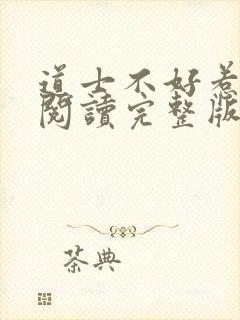 道士不好惹
閱讀完整版
茶典